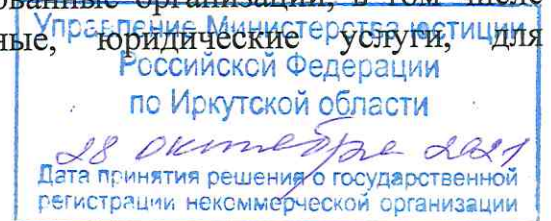 ованные организации, в том числе
ные, юридические услуги, для
Управление Министерства юстиции
Российской Федерации
по Иркутской области
28 октября 2021
Дата принятия решения о государственной
регистрации некоммерческой организации